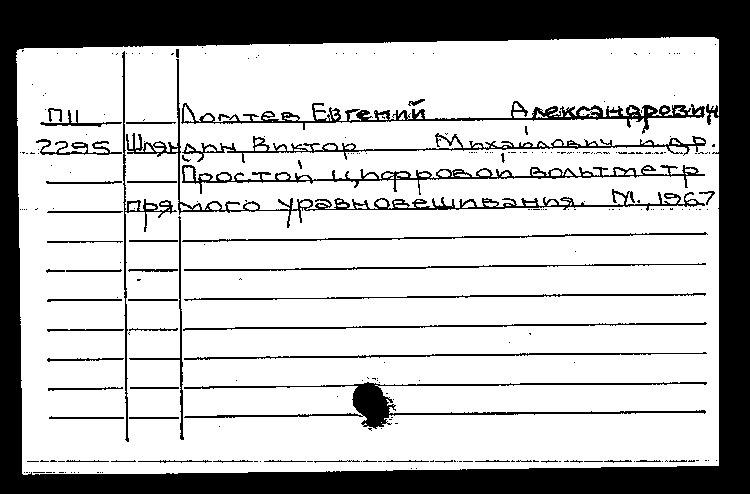 П11 Ломтев, Евгений Александрович
2295 Шляндин, Виктор Михайлович и др.
Простой цифровой вольтметр
прямого уравновешивания. М., 1967